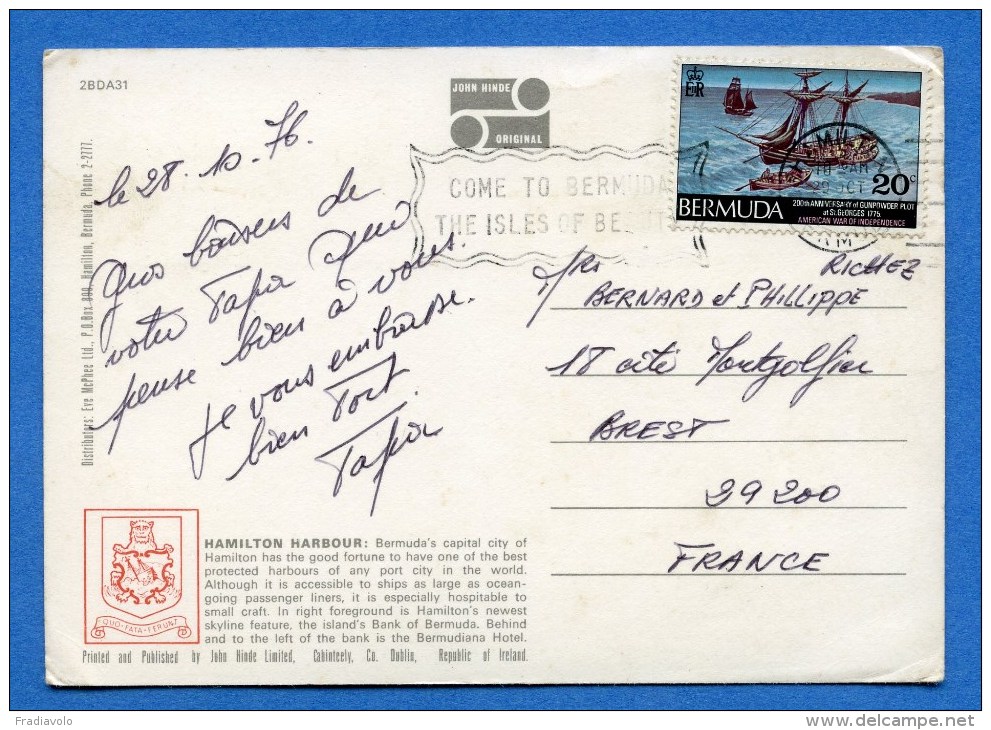 2BDA31
JOHN HINDE
ORIGINAL
COME TO BERMUDA
THE ISLES OF BEAUT
E R
20c
BERMUDA
200th ANNIVERSARY of GUNPOWDER PLOT
at St. GEORGES 1775.
AMERICAN WAR OF INDEPENDENCE
Distributors: Eve McPhee Ltd., P.O.Box 800, Hamilton, Bermuda, Phone 2-2777.
le 28. 10. 76.
Gros baisers de
votre Tapia qui
pense bien à vous.
Je vous embrasse
bien Tort.
Tapia
RICHEZ
BERNARD et PHILLIPPE
18 cité Montgolfier
BREST
29200
FRANCE
QUO·FATA·FERUNT
HAMILTON HARBOUR: Bermuda's capital city of
Hamilton has the good fortune to have one of the best
protected harbours of any port city in the world.
Although it is accessible to ships as large as ocean-
going passenger liners, it is especially hospitable to
small craft. In right foreground is Hamilton's newest
skyline feature, the island's Bank of Bermuda. Behind
and to the left of the bank is the Bermudiana Hotel.
Printed and Published by John Hinde Limited, Cabinteely, Co. Dublin, Republic of Ireland.
Fradiavolo
www.delcampe.net